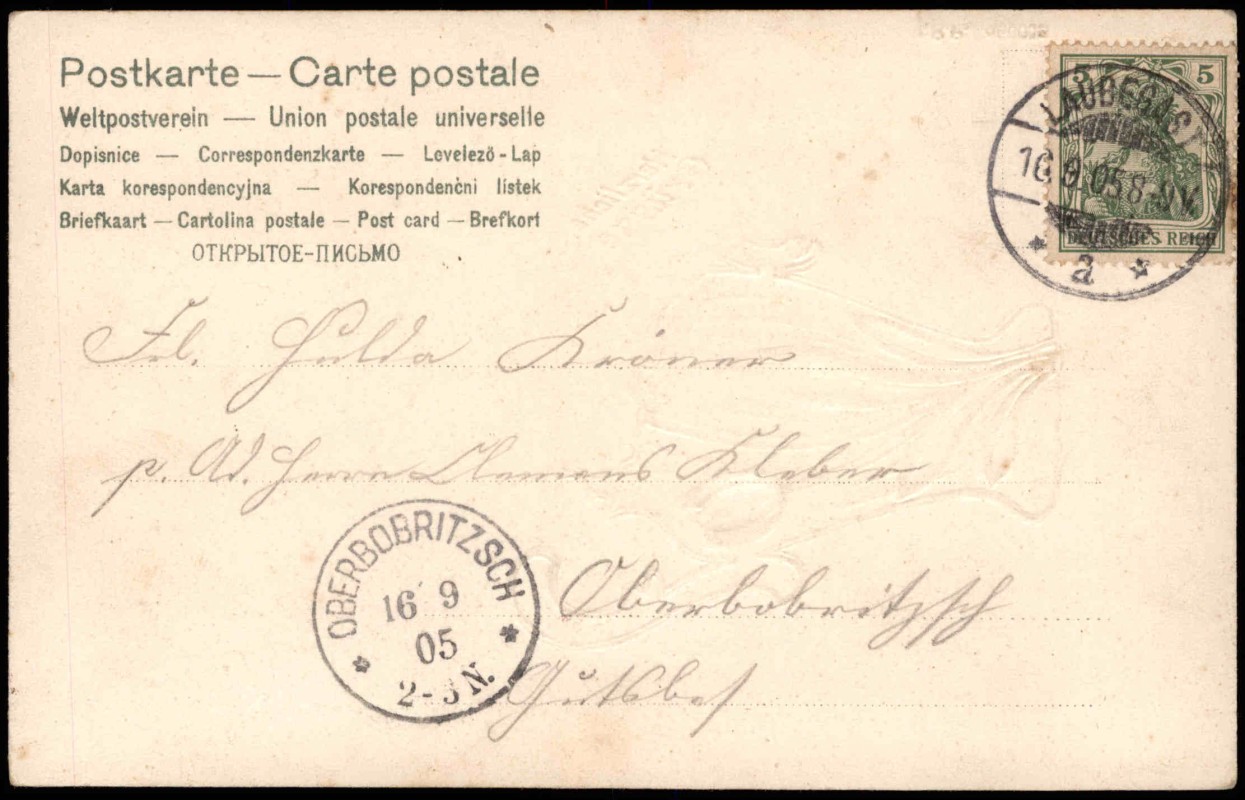 Postkarte — Carte postale
Weltpostverein — Union postale universelle
Dopisnice — Correspondenzkarte — Levelező-Lap
Karta korespondencyjna — Korespondenčni listek
Briefkaart — Cartolina postale — Post card — Brefkort
ОТКРЫТОЕ-ПИСЬМО
5 5
DEUTSCHES REICH
LAUBEGAST
16.9.05 8-9 V.
a
Frl. Hulda Kröner
p. Ad. Herrn Clemens Kleber
Oberbobritzsch
Gutsbes
OBERBOBRITZSCH
16 9
05
2-3 N.